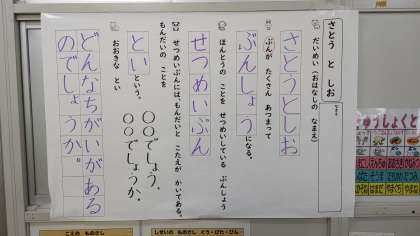 さとう と しお
だいめい(おはなしの なまえ)
さとうとしお
ぶんが たくさん あつまって
ぶんしょうになる。
ほんとうの ことを せつめいしている ぶんしょう
せつめいぶん
せつめいぶんには、もんだいと こたえが かいてある。
もんだいの ことを
といという。
〇〇でしょう。
〇〇でしょうか。
おおきな とい
どんなちがいがある
のでしょうか。
こえの ものさし
しせいの ものさし ぐう・ぴた・ぴん